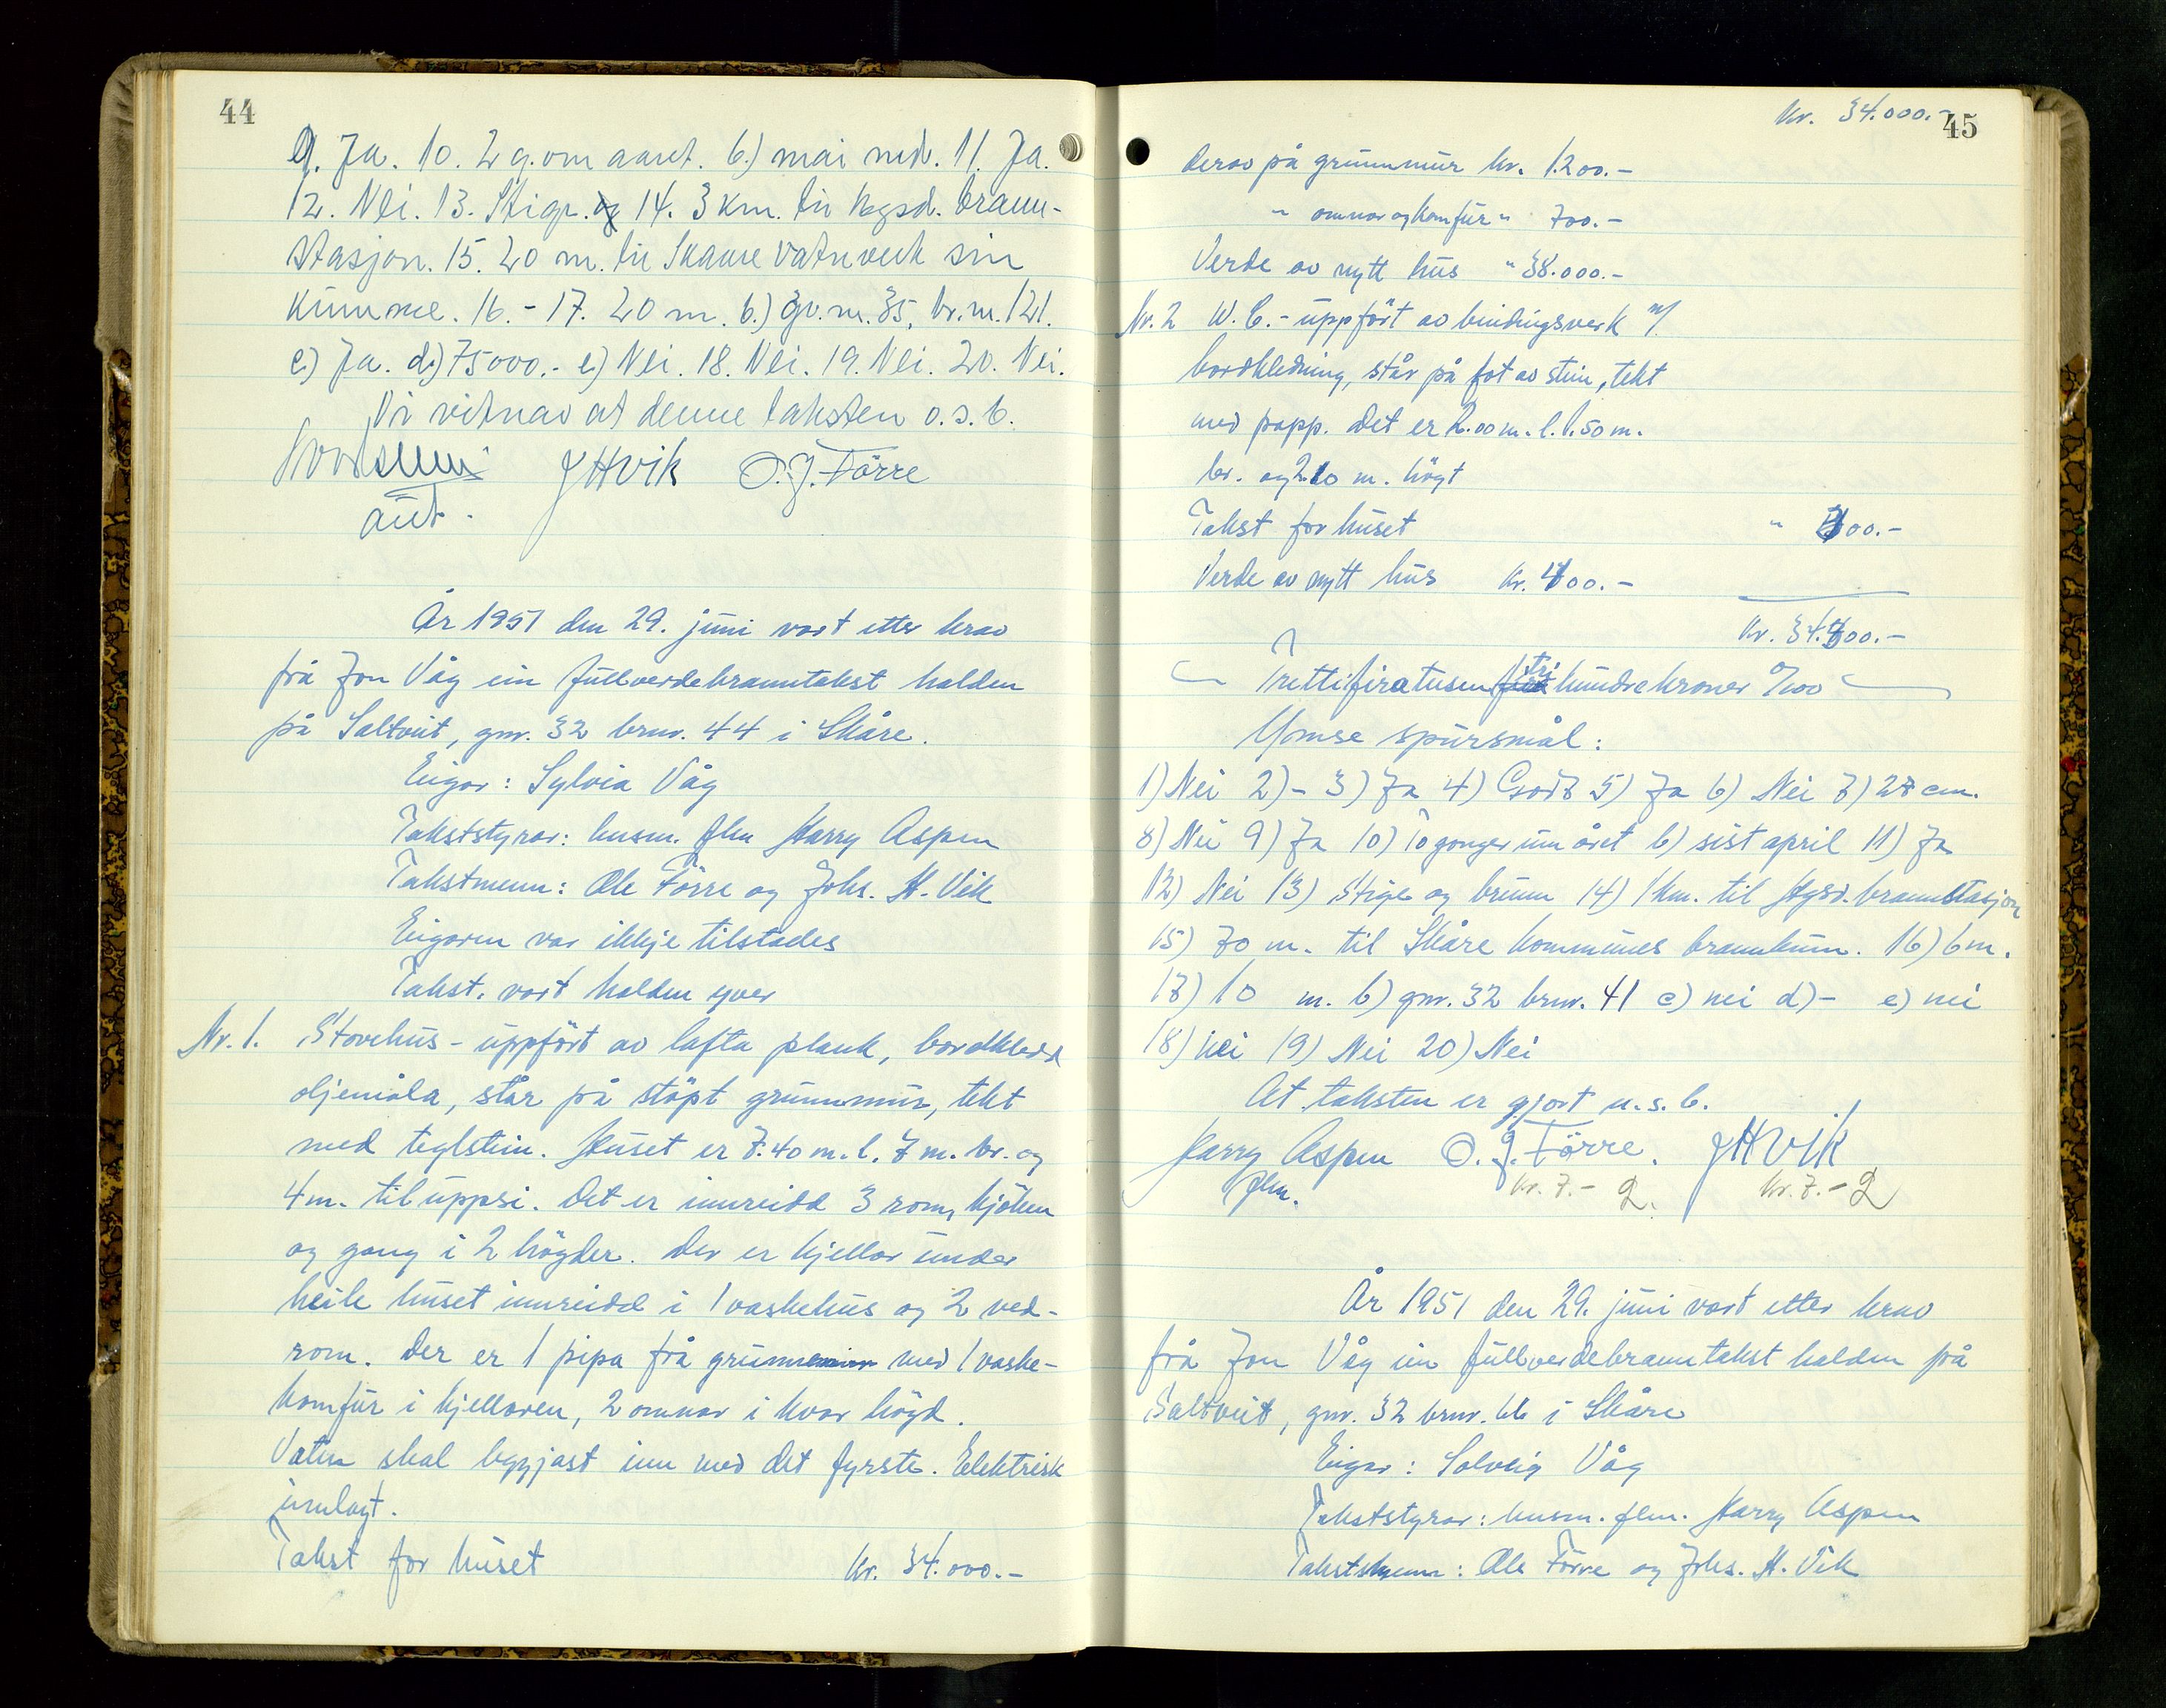 44
9. Ja. 10. 2 g. om aaret. b.) mai md. 11. Ja.
12. Nei. 13. Stige. og 14. 3 km. til Hgsd. brann-
stasjon. 15. 20 m. til Skaare vatnverk sin
kumme. 16. - 17. 20 m. b.) gr. m. 35, br. m. 121.
c) Ja. d.) 75000.- e) Nei. 18. Nei. 19. Nei. 20. Nei.
Vi vitnar at denne taksten o.s.b.
JHVik O. J. Förre
aut.
År 1951 den 29. juni vart etter krav
frå Jon Våg ein fullverdebranntakst halden
på Saltveit, gnr. 32 brnr. 44 i Skåre.
Eigar: Sylvia Våg
Takststyrar: lensm. flm Harry Aspen
Takstmenn: Ole Förre og Johs. H. Vik
Eigaren var ikkje tilstades
Takst. vart halden yver
Nr. 1. Stovehus - uppfört av lafta plank, bordkledd
oljemåla, står på stöpt grunnmur, tekt
med teglstein. Huset er 7.40 m. l. 7 m. br. og
4 m. til uppsi. Det er innreidd 3 rom, kjöken
og gang i 2 högder. Der er kjellar under
heile huset innreidd i 1 vaskehus og 2 ved-
rom. Der er 1 pipa frå grunnen med 1 vaske-
komfur i kjellaren, 2 omnar i kvar högd.
Vatn skal leggjast inn med det fyrste. Elektrisk
innlagt.
Takst for huset kr. 34.000.-
45
kr. 34.000.-
derav på grunnmur kr. 1.200.-
" omnar og komfur " 700.-
Verde av nytt hus " 38.000.-
Nr. 2 W.C. - uppfört av bindingsverk m/
bordkledning, står på fot av stein, tekt
med papp. Det er 2.00 m. l. 1.50 m.
br. og 2.10 m. högt
Takst for huset " 300.-
Verde av nytt hus kr. 400.-
kr. 34.300.-
Trettifiratusen fire tri hundre kroner 0/100
Ymse spursmål:
1) Nei 2) - 3) Ja 4) Godt 5) Ja 6) Nei 7) 28 cm.
8) Nei 9) Ja 10) To gonger um året b) sist april 11) Ja
12) Nei 13) Stige og brunn 14) 1 km. til Hgsd. brannstasjon
15) 70 m. til Skåre kommunes brannkum. 16) 6 m.
17) 10 m. b) gnr. 32 brnr. 41 c) nei d) - e) nei
18) nei 19) Nei 20) Nei
At taksten er gjort u.s.b.
Harry Aspen O. J. Förre. JHVik
flm. kr. 7.- 2. kr. 7.- 2
År 1951 den 29. juni vart etter krav
frå Jon Våg ein fullverdebranntakst halden på
Saltveit, gnr. 32 brnr. 66 i Skåre
Eigar: Solveig Våg
Takststyrar: lensm. flm. Harry Aspen
Takstmenn: Ole Förre og Johs. H. Vik